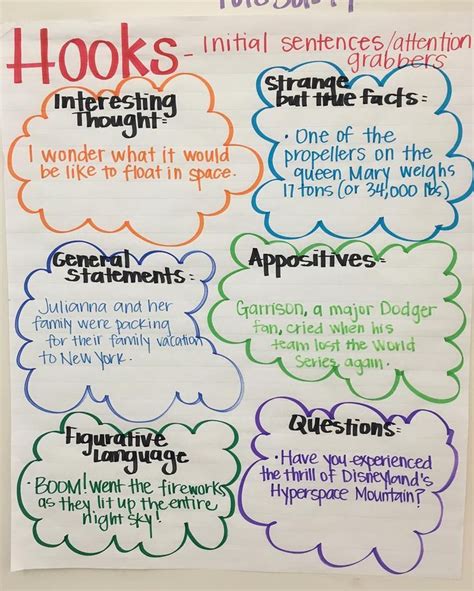 Hooks - Initial sentences/attention
grabbers
Interesting
Thought:
I wonder what it would
be like to float in space.
Strange
but true facts:
· One of the
propellers on the
queen Mary weighs
17 tons (or 34,000 lbs)
General
Statements:
Julianna and her
family were packing
for their family vacation
to New York.
Appositives:
Garrison, a major Dodger
fan, cried when his
team lost the World
Series again.
Figurative
Language
· BOOM! went the fireworks
as they lit up the entire
night sky!
Questions:
· Have you experienced
the thrill of Disneyland's
Hyperspace Mountain?